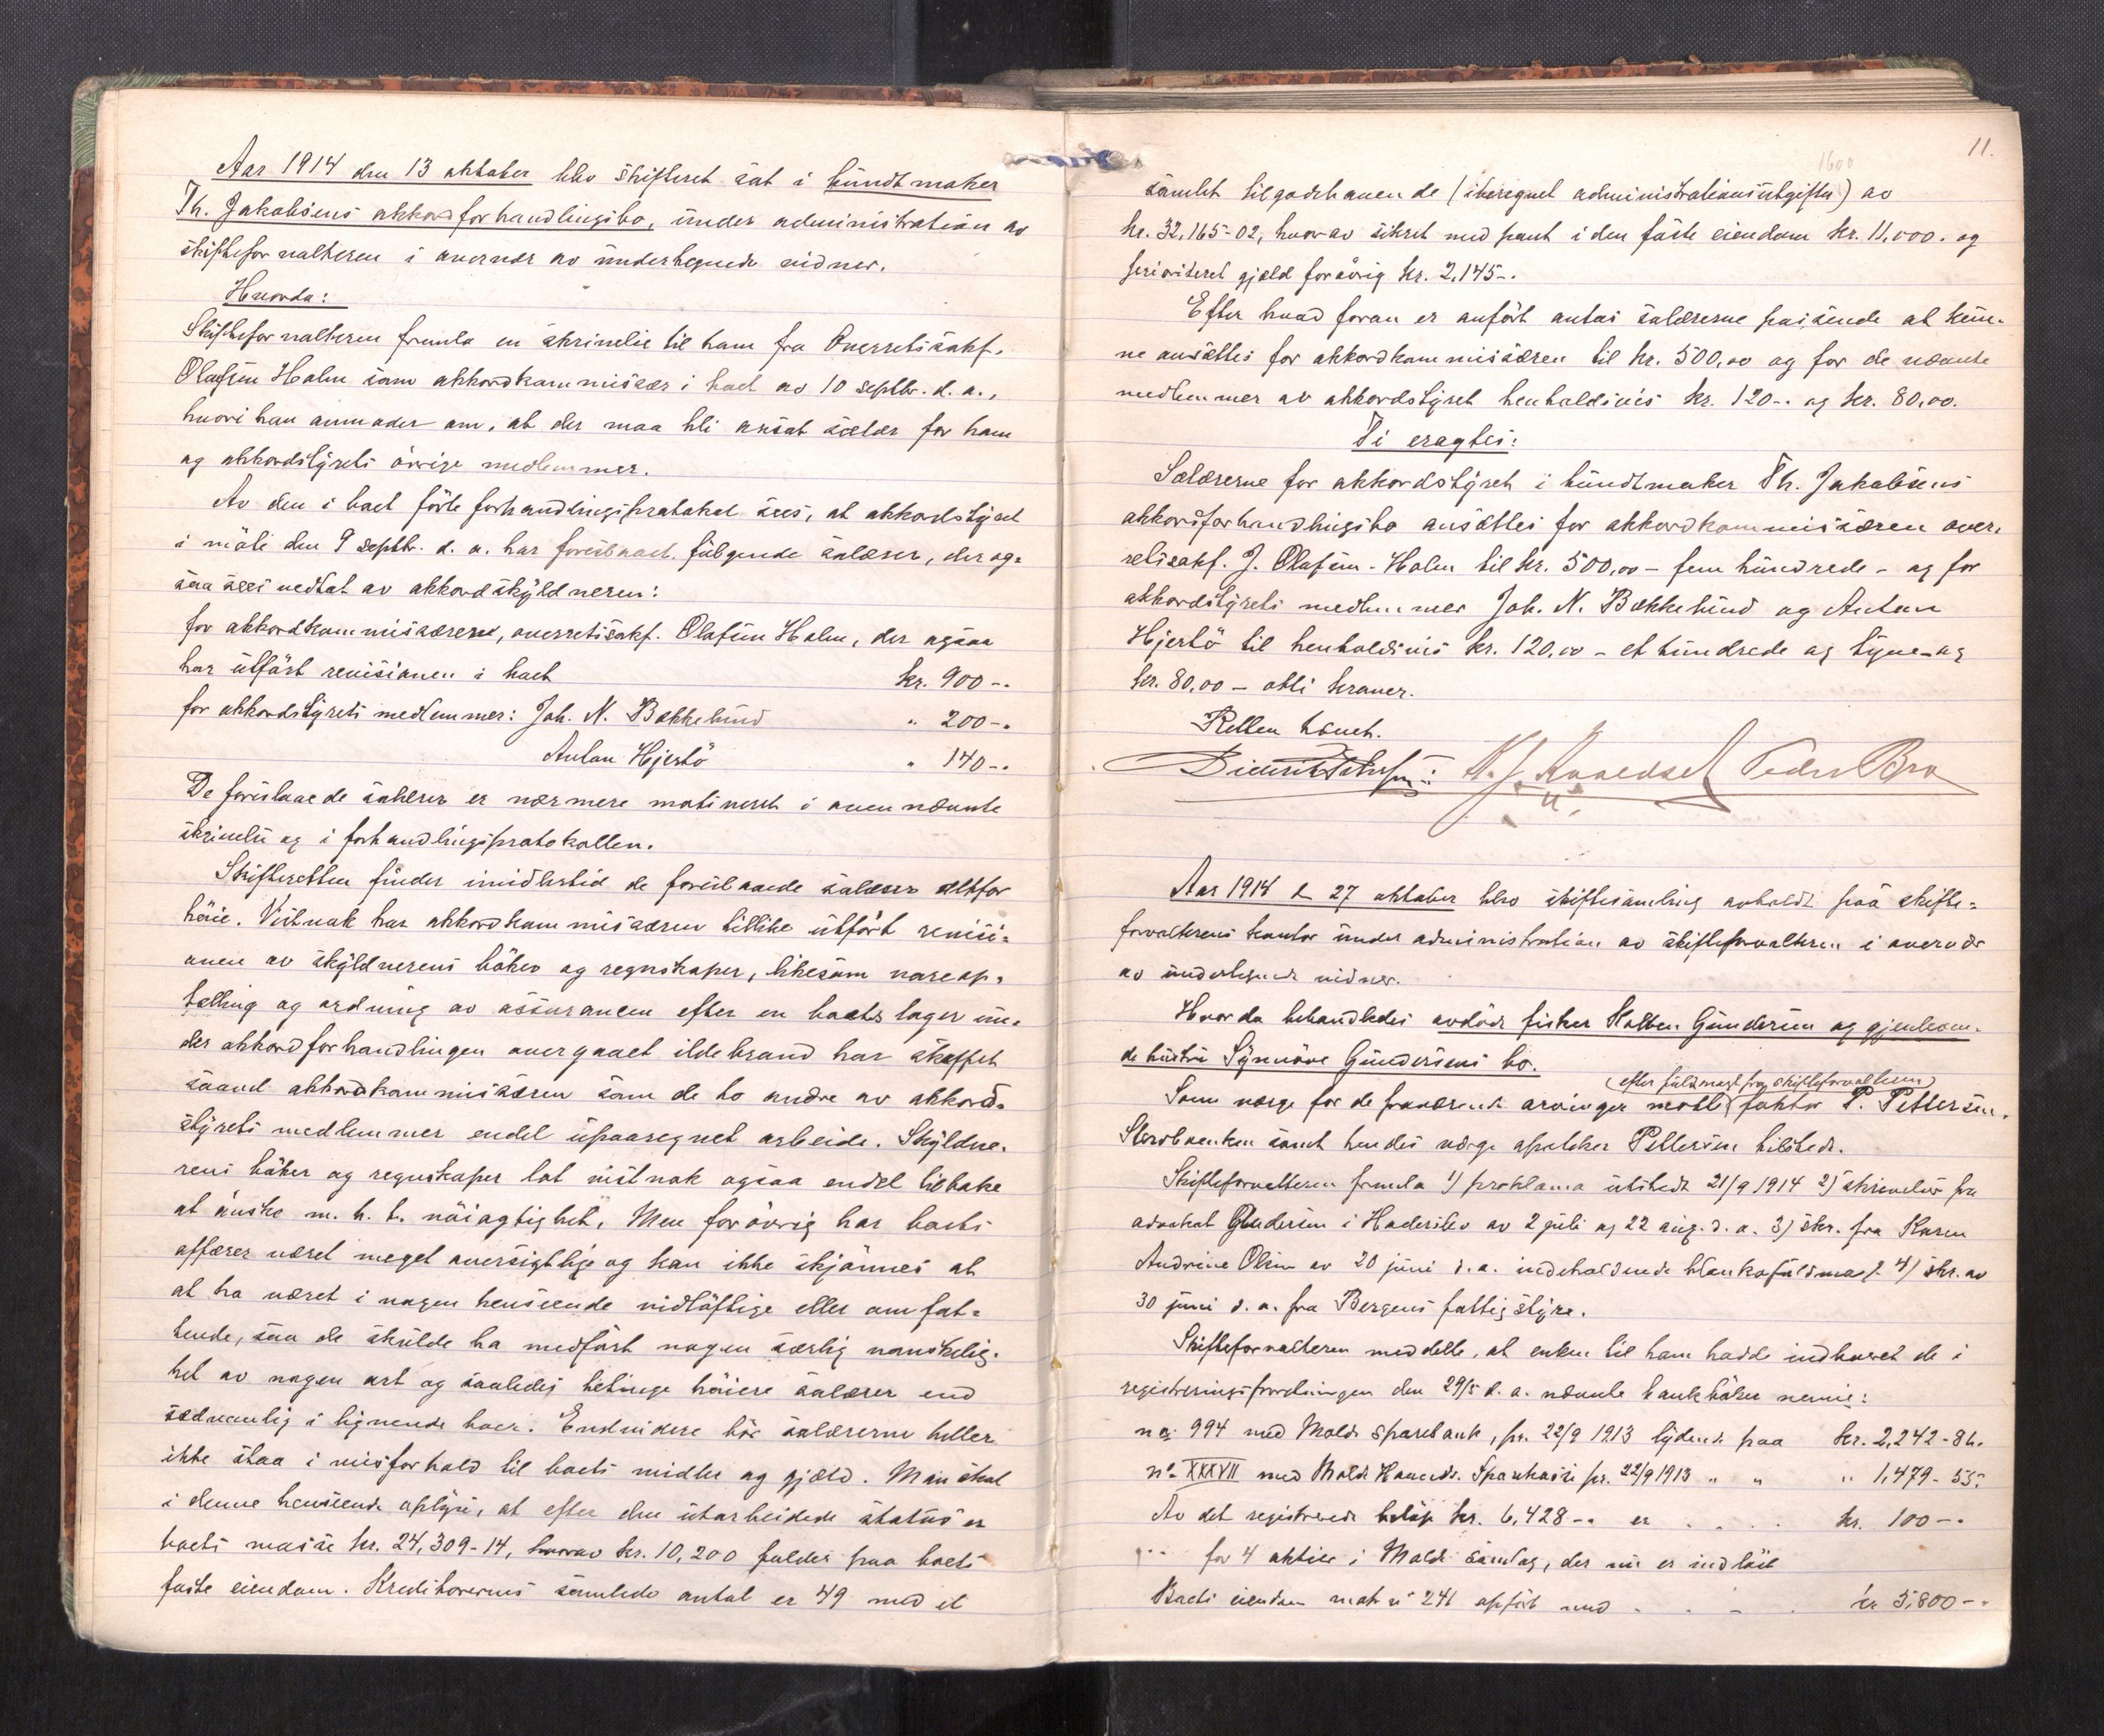 Aar 1914 den 13 oktober blev skifteret sat i bundtmaker
Th. Jakobsens akkordforhandlingsbo, under administration av
skifteforvalteren i overvær av undertegnede vidner.
Hvorda:
Skifteforvalteren fremla en skrivelse til ham fra Overretssakf.
Olafsen Holm som akkordkommissær i boet av 10 septbr. d. a.,
hvori han anmoder om, at der maa bli ansat salær for ham
og akkordstyrets övrige medlemmer.
Av den i boet förte forhandlingsprotokol sees, at akkordstyret
i möte den 9 septbr. d. a. har foreslaaet følgende salærer, der og-
saa sees vedtat av akkordskyldneren:
for akkordkommissæren, overretssakf. Olafsen Holm, der ogsaa
har utfört revisionen i boet kr. 900-.
for akkordstyrets medlemmer: Joh. N. Bakkelund " 200-.
Anton Hjertö " 140-.
De foreslaaede salærer er nærmere motiveret i ovennævnte
skrivelse og i forhandlingsprotokollen.
Skifteretten finder imidlertid de foreslaaede salærer altfor
höie. Vistnok har akkordkommissæren tillike utfört revisi-
onen av skyldnerens böker og regnskaper, likesom vareop-
tælling og ordning av assurancen efter en boets lager un-
der akkordforhandlingen overgaaet ildebrand har skaffet
saavel akkordkommissæren som de to andre av akkord-
styrets medlemmer endel upaaregnet arbeide. Skyldne-
rens böker og regnskaper lot vistnok ogsaa endel tilbake
at önske m. h. t. nöiagtighet, Men forövrig har boets
affærer været meget oversigtlige og kan ikke skjönnes at
at ha været i nogen henseende vidlöftige eller omfat-
tende, saa de skulde ha medfört nogen særlig vanskelig-
het av nogen art og saaledes betinge höiere salærer end
sedvanlig i lignende boer. Endvidere bör salærerne heller
ikke staa i misforhold til boets midler og gjæld. Man skal
i denne henseende oplyse, at efter den utarbeidede status er
boets masse kr. 24,309-14, hvorav kr. 10,200 falder paa boets
faste eiendom. Kreditorernes samlede antal er 49 med et
11.
1600
samlet tilgodehavende (iberegnet administrationsutgifter) av
kr. 32,165-02, hvorav sikret med pant i den faste eiendom kr. 11,000. og
prioriteret gjæld forövrig kr. 2,145-.
Efter hvad foran er anfört antas salærerne passende at kun-
ne ansættes for akkordkommissæren til kr. 500,00 og for de nævnte
medlemmer av akkordstyret henholdsvis kr. 120-. og kr. 80,00.
Ti eragtes:
Salærerne for akkordstyret i bundtmaker Th. Jakobsens
akkordforhandlingsbo ansættes for akkordkommissæren over-
retssakf. J. Olafsen-Holm til kr. 500,00 - fem hundrede - og for
akkordstyrets medlemmer Joh. N. Bakkelund og Anton
Hjertö til henholdsvis kr. 120,00 - et hundrede og tyve - og
kr. 80,00 - otti kroner.
Retten hævet.
Peder Bro
Aar 1914 d 27 oktober blev skiftesamling avholdt paa skifte-
forvalterens kontor under administration av skifteforvalteren i overvær
av undertegnede vidner.
Hvorda behandledes avdöde fisker Gundersen og gjenleven-
de hustru Synnöve Gundersens bo.
(efter fuldmagt fra skifteforvalteren)
Som værge for de fraværende arvinger mötte faktor P. Pettersen.
samt hendes værge apoteker Pettersen tilstede.
Skifteforvalteren fremla 1) proklama utstedt 21/9 1914 2) skrivelser fra
advokat Gundersen i Haderslev av 2 juli og 22 aug. d. a. 3) skr. fra Karen
Andrine Olsen av 20 juni d. a. indeholdende blankofuldmagt 4) skr. av
30 juni d. a. fra Bergens fattigstyre.
Skifteforvalteren meddelte, at enken til ham hadde indlevert de i
registreringsforretningen den 29/5 d. a. nævnte bankböker nemlig:
no. 994 med Molde Sparebank, pr. 22/9 1913 lydende paa kr. 2,242-86.
no. XXXVII med Molde Haandv. Sparekasse pr. 22/9 1913 " " " 1,479-55.
Av det registrerede belöp kr. 6,428-. er . . . . kr. 100-.
for 4 aktier i Molde samlag, der nu er indlöst
Boets eiendom matr no 241 opfört med . . - . kr 5,800-.